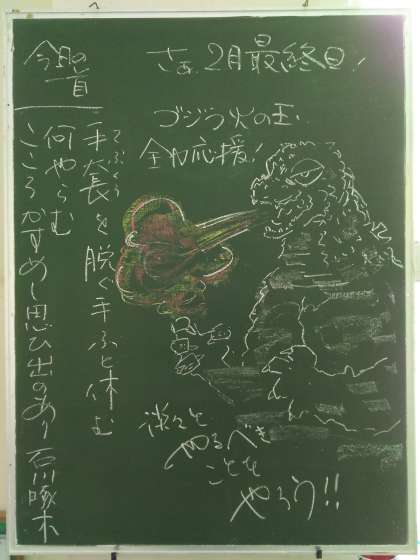 さぁ、2月最終日!
今日の
一首
手套を脱ぐ手ふと休む
てぶくろ
何やらむ
こころかすめし思ひ出のあり 石川啄木
ゴジラ火の玉
全力応援!
淡々と
やるべき
ことを
やろう!!